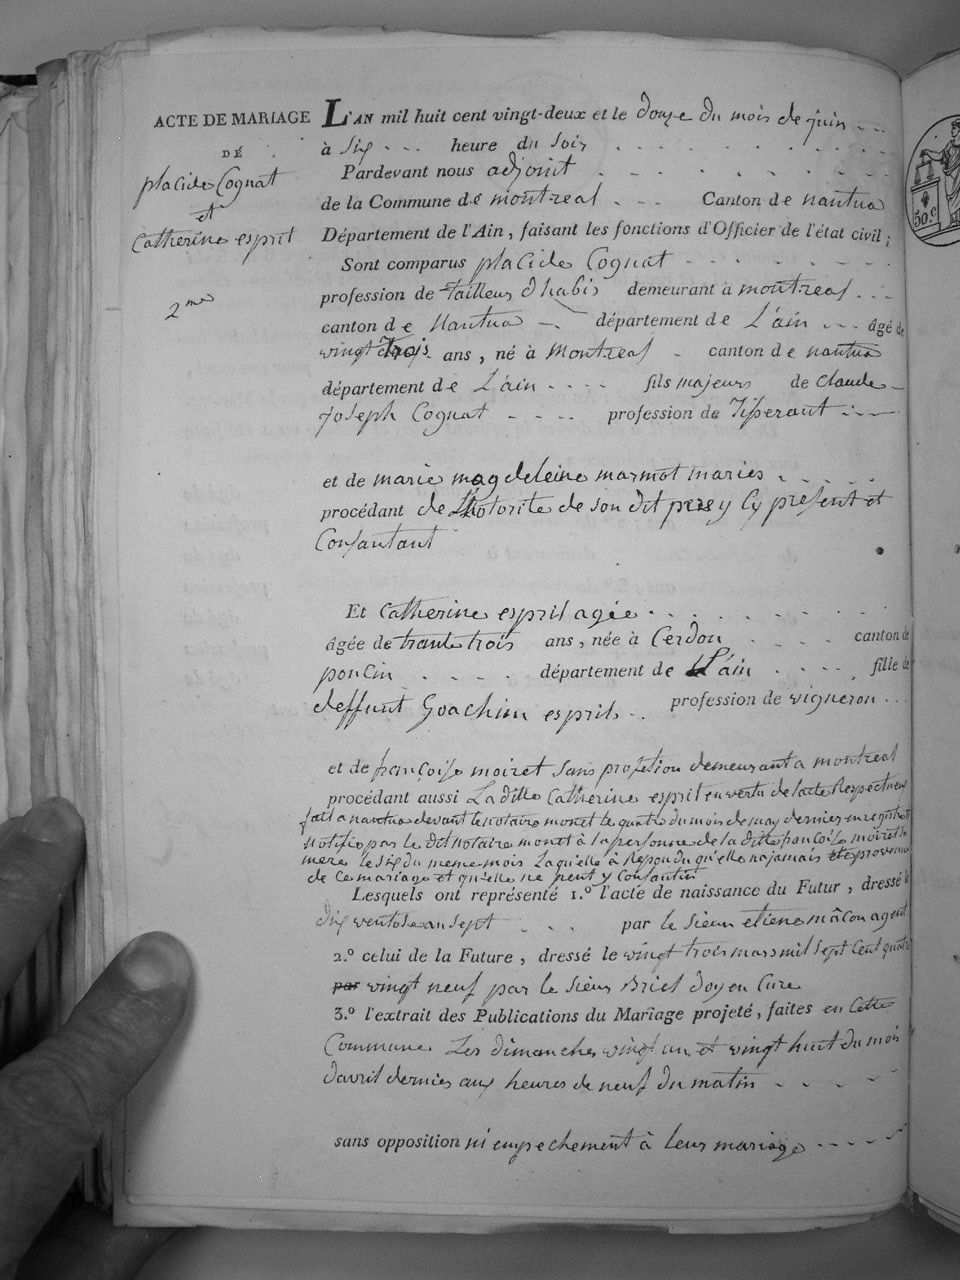 ACTE DE MARIAGE
DE
placide Cognat
et
Catherine esprit
2me
L'AN mil huit cent vingt-deux et le douze du mois de juin
à six heure du soir
Pardevant nous adjoint
de la Commune de montreal Canton de nantua
Département de l'Ain, faisant les fonctions d'Officier de l'état civil;
Sont comparus placide Cognat
profession de tailleur d'habis demeurant à montreal
canton de Nantua département de L'ain âgé de
vingt trois ans, né à Montreal canton de nantua
département de L'ain fils majeur de Claude
Joseph Cognat profession de Tisserant
et de marie magdeleine marmot maries
procédant de Lhotorite de son dit pere y Cy present et
Consantant
Et Catherine esprit agée
âgée de trante trois ans, née à Cerdon canton de
poncin département de L'ain fille de
deffunt Joachim esprit profession de vigneron
et de françoise moiret sans profetion demeurant a montreal
procédant aussi La ditte Catherine esprit en vertu de lacte Respectueux
fait a nantua devant le notaire monet le quatre du mois de may dernier enregistré
Notifié par le dit notaire monet à la personne de la ditte françoise moiret sa
mere le six du meme mois Laquelle à Repondu qu'elle na jamais
de Ce mariage et qu'elle ne peut y Consantir
Lesquels ont représenté 1.º l'acte de naissance du Futur, dressé le
dix ventose an sept par le sieur etiene mâcon agent
2.º celui de la Future, dressé le vingt trois mars mil sept Cent quatre
par vingt neuf par le sieur Briel doyen Cure
3.º l'extrait des Publications du Mariage projeté, faites en Cette
Commune Les dimanches vingt un et vingt huit du mois
davril dernier aux heures de neuf du matin
sans opposition ni empechement à leur mariage
50.c